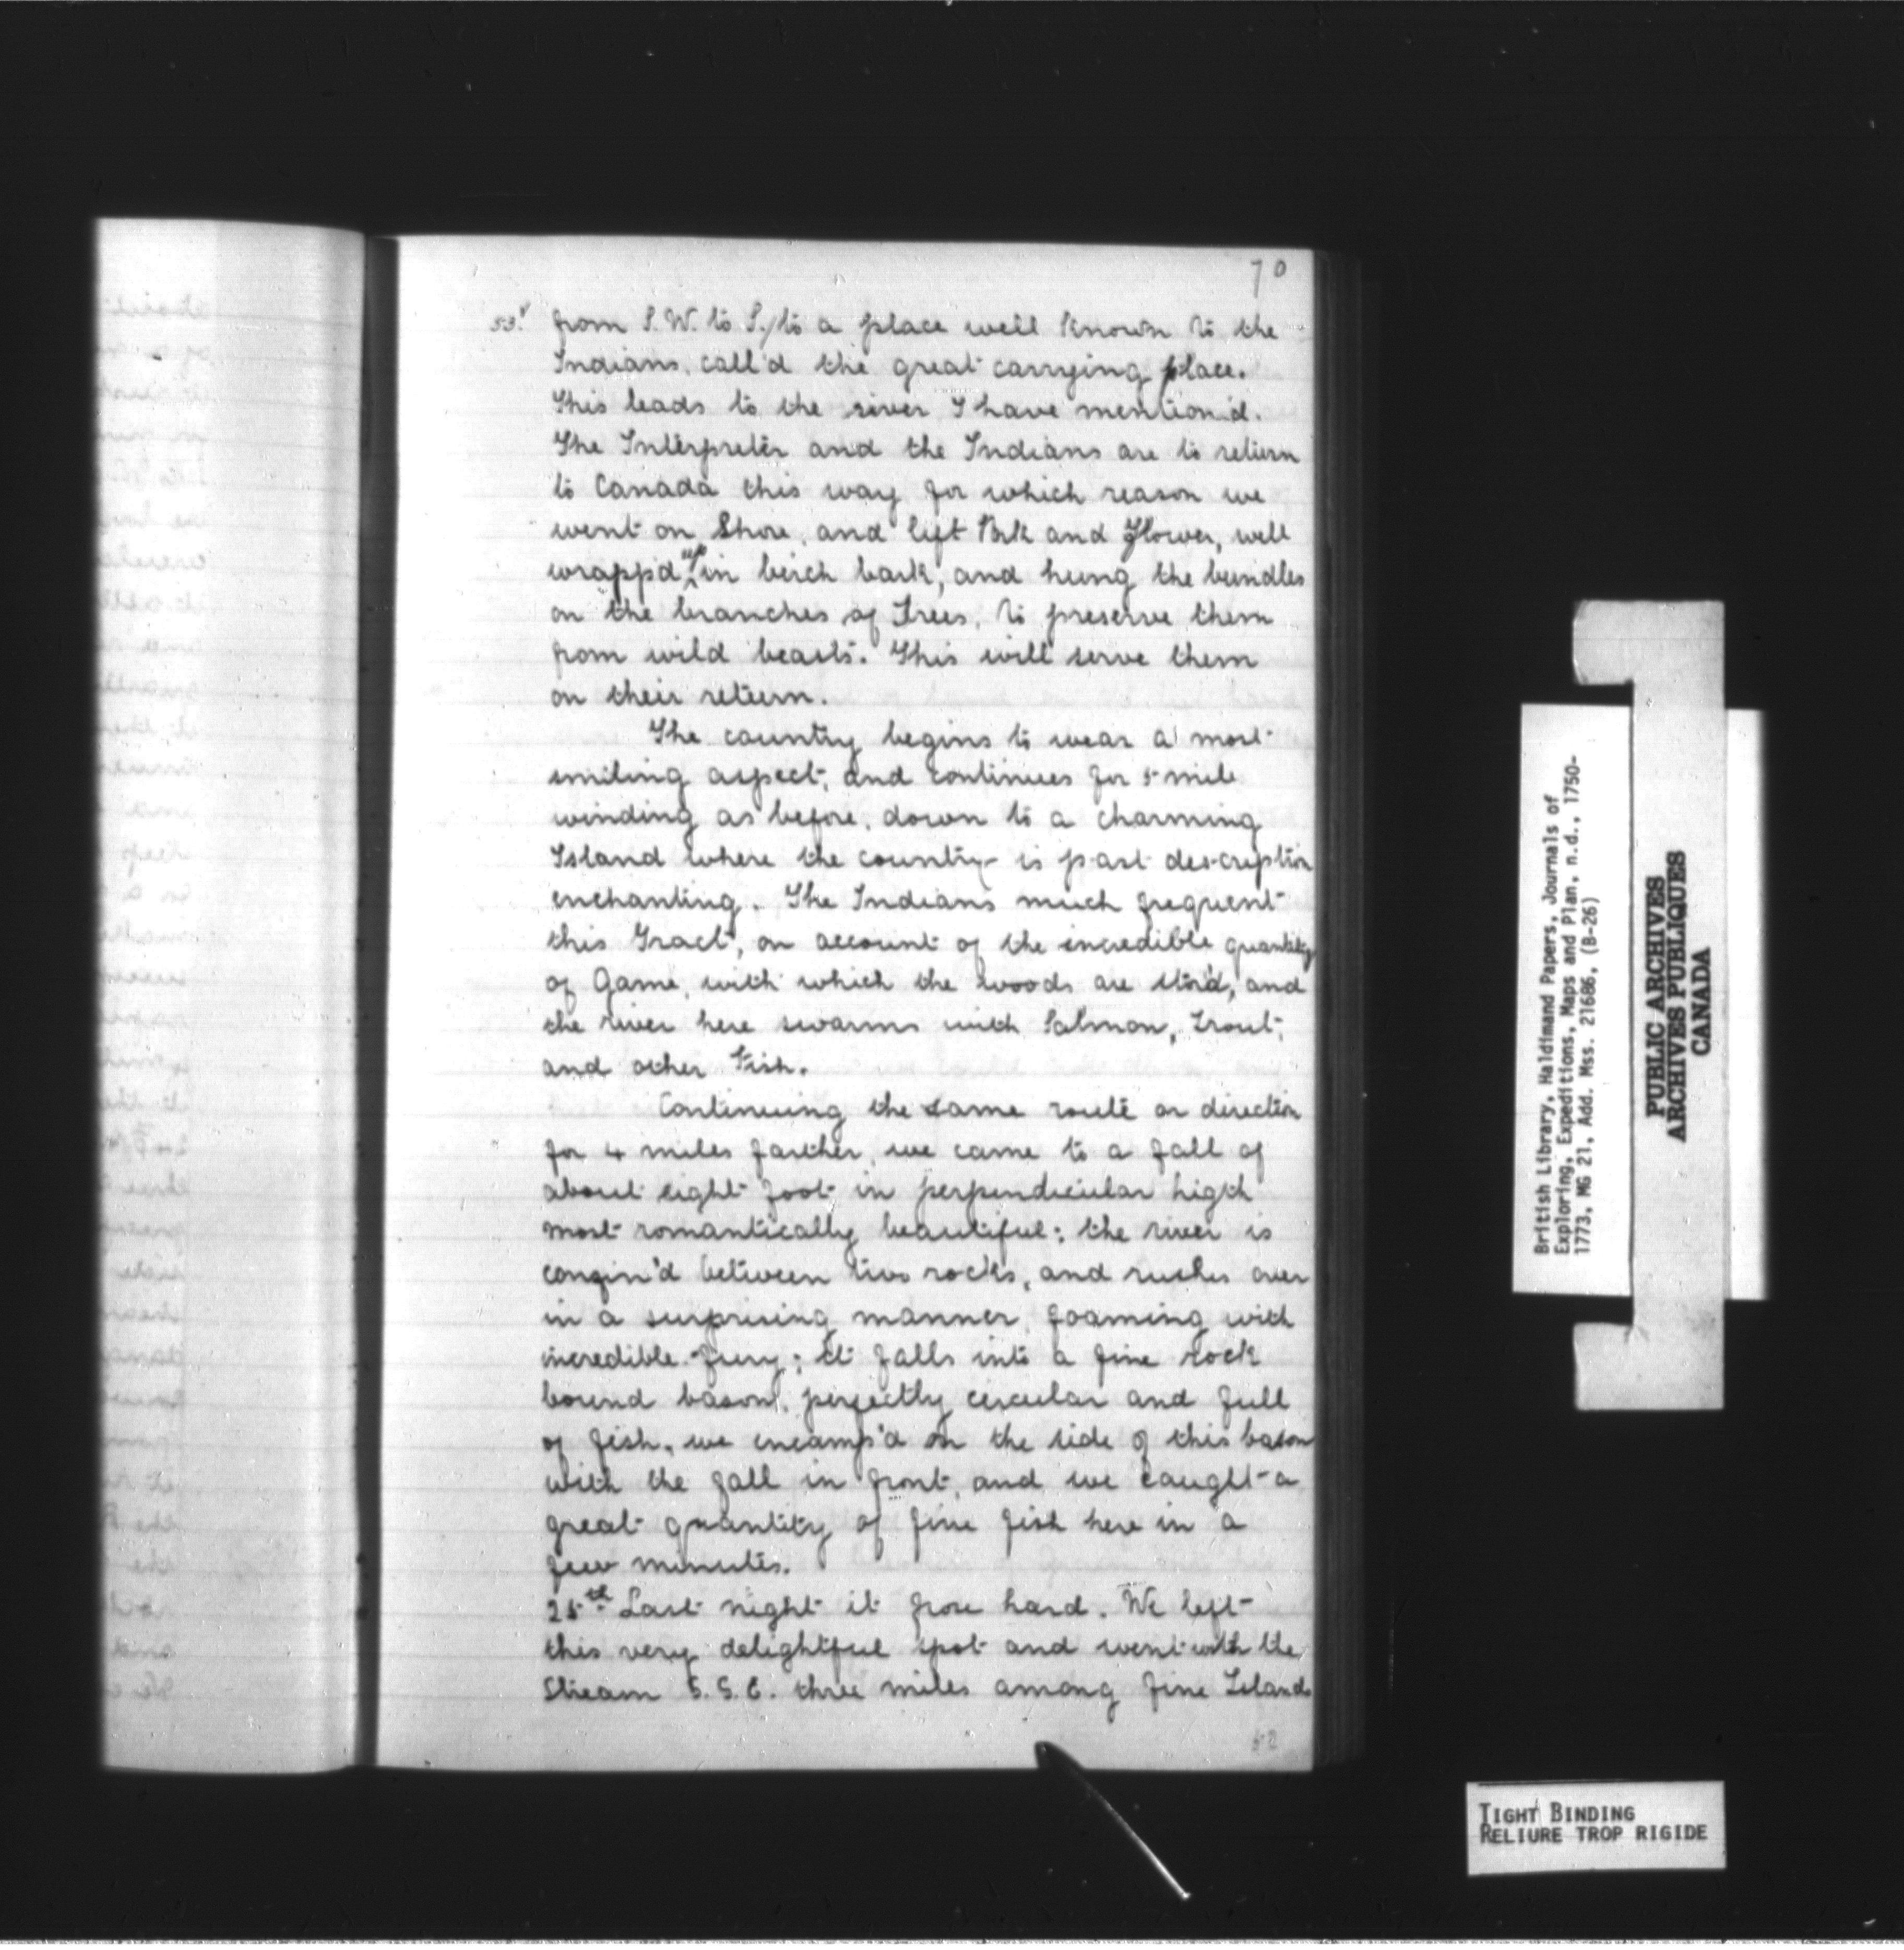 70
53.v from S.W. to S./to a place well known to the
Indians, call'd the great carrying place.
This leads to the river I have mention'd.
The Interpreter and the Indians are to return
to Canada this way for which reason we
went on Shore, and left Pork and Flower, well
wrapp'd up in birch bark, and hung the bundles
on the branches of Trees, to preserve them
from wild beasts. This will serve them
on their return.
The country begins to wear a most
smiling aspect, and continues for 5 mile
winding as before, down to a charming
Island where the country is past description
enchanting. The Indians much frequent
this Tract, on account of the incredible quantity
of Game, with which the woods are stor'd, and
the river here swarms with Salmon, Trout,
and other Fish.
Continuing the same route or direction
for 4 miles farther, we came to a fall of
about eight foot in perpendicular higth
most romantically beautiful; the river is
confin'd between two rocks, and rushes over
in a surprising manner, foaming with
incredible fury; it falls into a fine rock
bound bason, perfectly circular and full
of fish, we encamp'd on the side of this bason
with the fall in front, and we caught a
great quantity of fine fish here in a
few minutes.
25th Last night it froze hard. We left
this very delightful spot and went with the
Stream S.S.E. three miles among fine Islands
British Library, Haldimand Papers, Journals of
Exploring, Expeditions, Maps and Plan, n.d., 1750-
1773, MG 21, Add. Mss. 21686, (B-26)
PUBLIC ARCHIVES
ARCHIVES PUBLIQUES
CANADA
TIGHT BINDING
RELIURE TROP RIGIDE